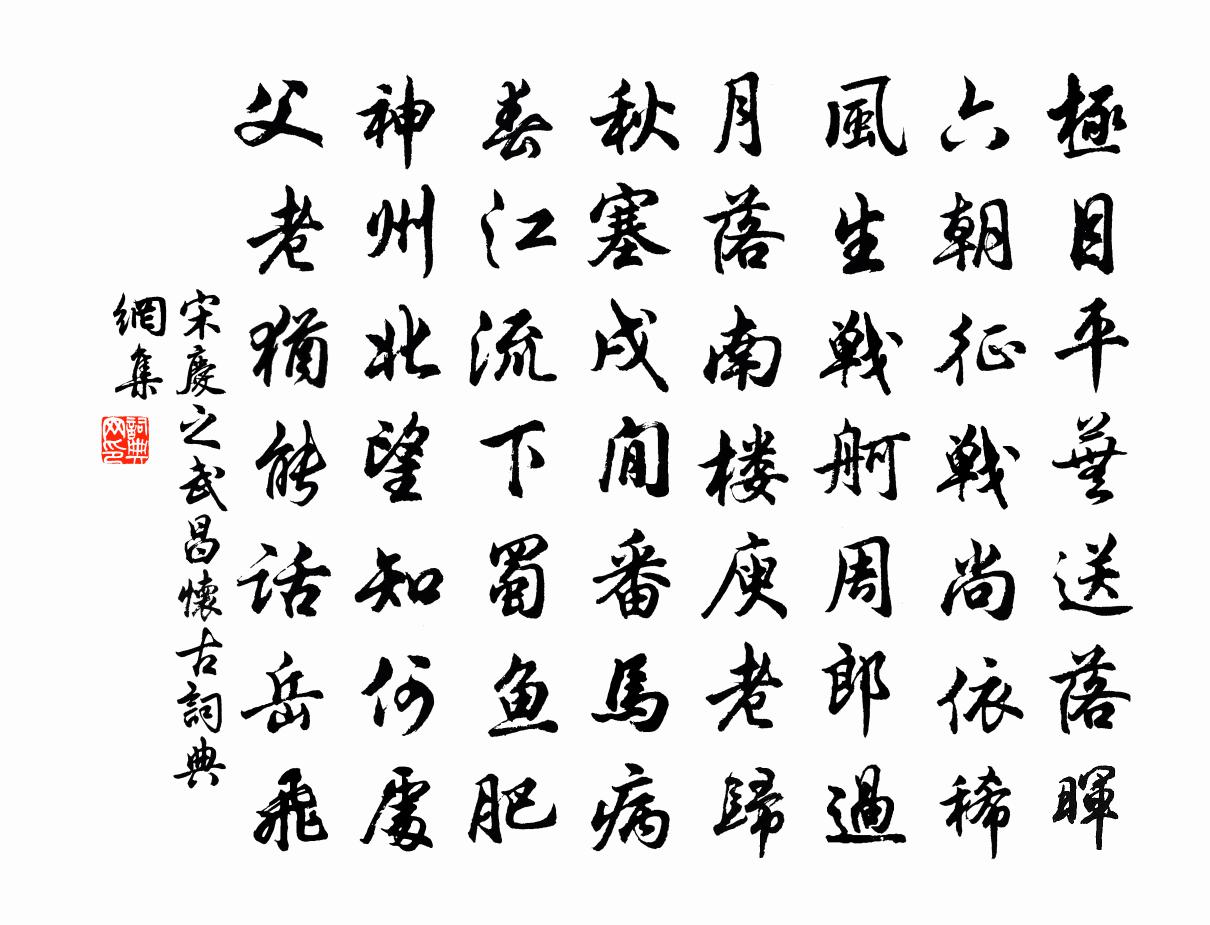 極目平蕪送落暉
六朝征戰尚依稀
風生戰舸周郎過
月落南楼庾老歸
秋塞戍閒番馬病
春江流下蜀魚肥
神州北望知何處
父老猶能話岳飛
宋慶之武昌懷古詞典
網集
詞典
网印